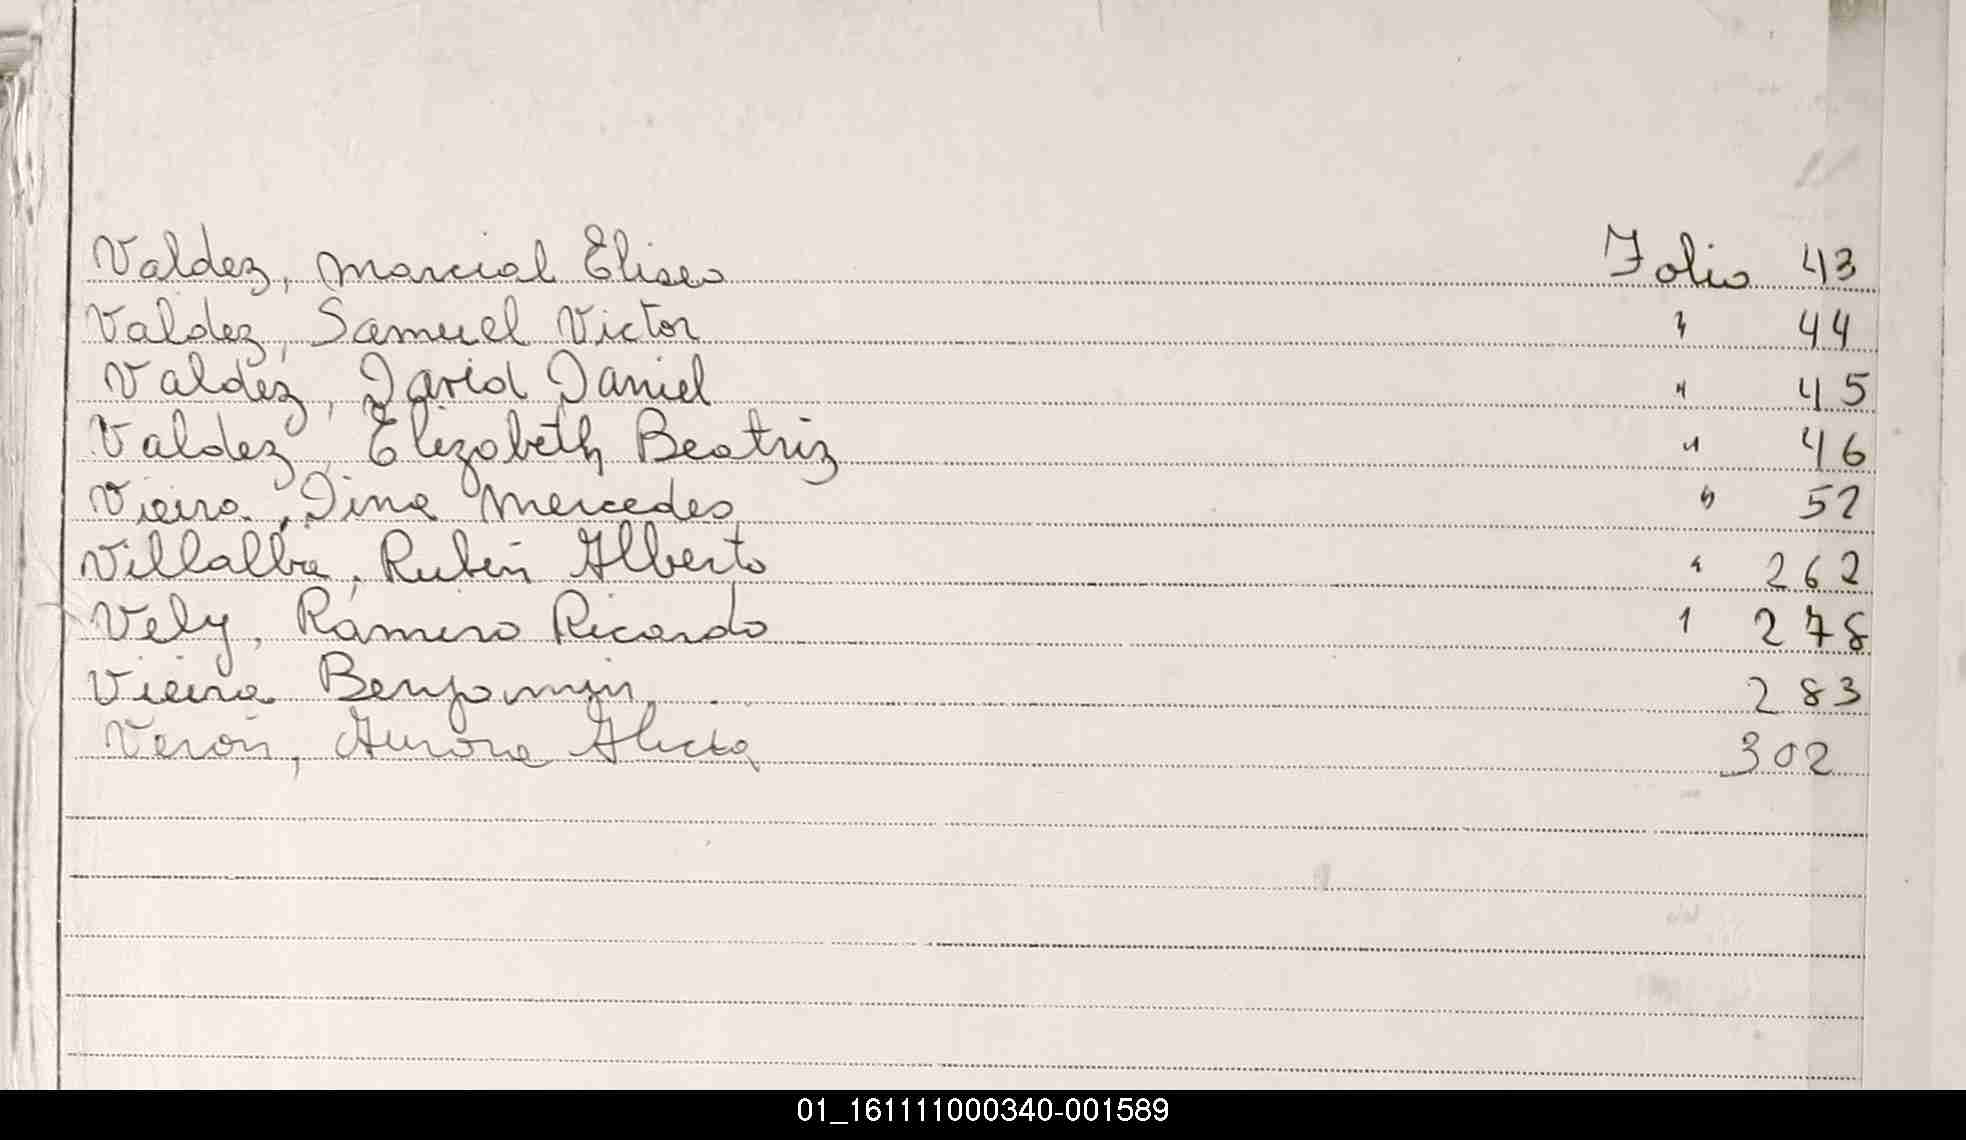 Valdez, Marcial Eliseo Folio 43
Valdez, Samuel Victor " 44
Valdez, David Daniel " 45
Valdez, Elizabeth Beatriz " 46
Vieira, Dina Mercedes " 52
Villalba, Rubén Alberto " 262
Vely, Ramiro Ricardo " 278
Vieira Benjamin 283
Verón, Aurora Alicia 302
01_161111000340-001589